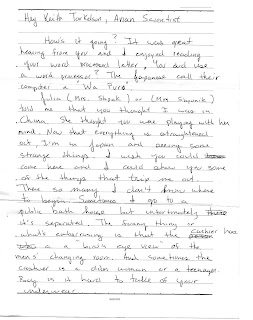 Hey Keith Torkelson, Asian Scientist
How's it going? It was great
hearing from you and I enjoyed reading
your word processed letter. You did use
a word processor? The Japanese call their
computer a "Wa Puro".
Julia (Mrs. Shpak) or (Mrs
told me that you thought I was in
China. She thought you was playing with her
mind. Now that everything is straightened
out, I'm in Japan and seeing some
strange things. I wish you could
come here and I could show you some
of the things that trip me out.
There so many I don't know where
to begin. Sometimes I go to a
public bath house but unfortunately
it's separated. The funny thing or
what's embarrassing is that the cashier has
a "bird's eye view" of the
mens' changing room. And sometimes the
cashier is a older woman or a teenager.
Boy is it hard to take of your
underwear